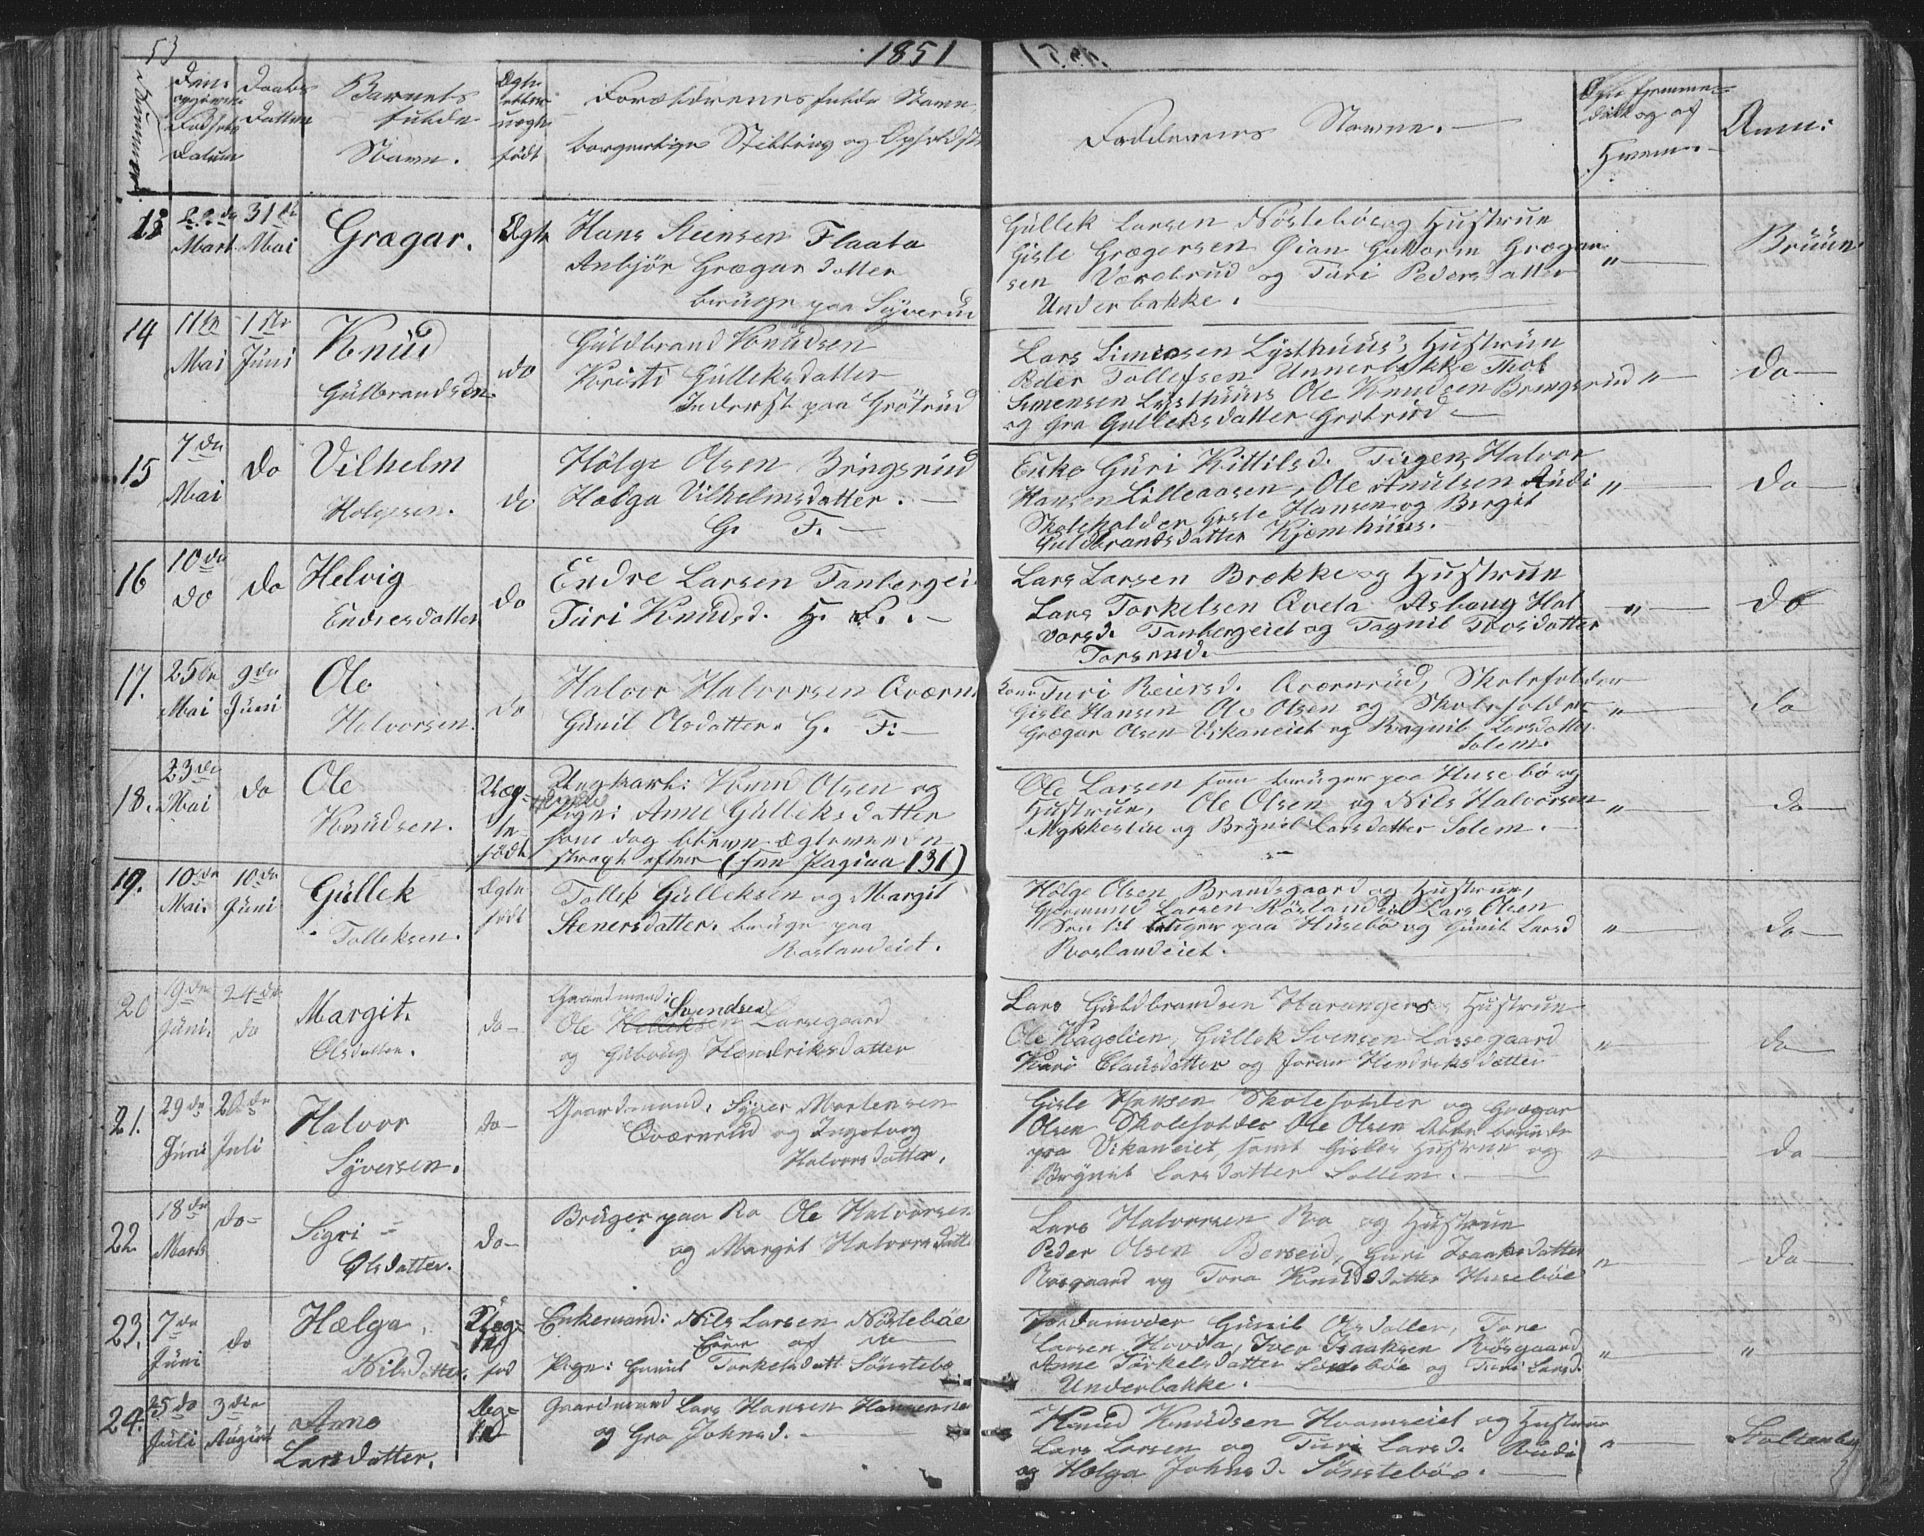 53
1851
Daabs
Datten
Barnets
fulde
Navn.
Forældrenes fulde Navn
borgerlige Stilling og
Faddernes Navne.
Anm:
13
22de Mart
31te Mai
Grægar.
Ægte
Hans Steensen Flaata
Anbjør Grægar datter
bruger paa Syverud
Güllek Larsen Nöstebö og Hustrue
Gisle Grægersen Øian Guttorm Grægar
sen Værebrud og Türi Peders datter
Underbakke.
"
Brüün
14
11te Mai
1ste Jüni
Knüd
Gülbrandsøn.
do
Güldbrand Knüdsen
Kristi Gülleksdatter
Inderst paa Grötrud
Lars Simensen Lysthüüs, Hustrün
Peder Tollefsen Unnerbakke Thol
Simensen Lysthüüs Ole Knudsen Bringsrüd
og Gro Gülleksdatter Grötrud
"
do
15
7de Mai
do
Vilhelm
Holgesen.
do
Hölge Olsen Bringsrüd
Helga Vilhelmsdatter.
G. F.
Enke Güri Kittilsd. Türgen, Halvor
Hansen Lilleaasen, Ole Knutsen Rüdi
Skoleholder Gisle Hansen og Bergit
Guldbrandsdatter Kjemhüüs.
"
do
16
10de do
do
Helvig
Endresdatter
do
Endre Larsen Tanbergei
Türi Knüdsd. H. F.
Lars Larsen Brekke og Hustrue
Lars Torkelsen Qveta Asbaug Hal
vorsd. Tanbergeiet og Tagnil Thosdatter
Torsrud.
"
do
17.
25de Mai
9de Jüni
Ole
Halvorsen.
do
Halvor Halvorsen Qværn
Günil Olsdatter. H. F.
Kone Türi Reiersd. Qværnrüd, Skoleholder
Gisle Hansen Ole Olsen og Skoleholder
Grægar Olsen Vikaneiet og Ragnil Larsdatter
Solem.
"
do
18.
23de Mai
do
Ole
Knüdsen.
Uæg-
te
født
Ungkarl: Knud Olsen og
Pige: Anne Gülleksdatter
som dog bleve Ægteviede
strax efter (see Pagina 131)
Ole Larsen som bruger paa Husebö og
Hustrue, Ole Olsen og Nils Halvorsen
Mykkestue og Brynil Larsdatter Solem.
"
do
19.
10de Mai.
10de Jüni
Güllek
Tolleksen.
Ægte
født
Tollek Gülleksen og Margit
Stenersdatter. bruger paa
Roslandeiet.
Holge Olsen Brandsgaard og Hustrue,
Germund Larsen Röslandeiet Lars Olsen
Søn til bruger paa Husebö og Günil Larsd
Roslandeiet.
"
do
20
19de Jüni.
24de do
Margit.
Olsdatter.
do
Gaardmand: Svendsen
Ole Larsegaard
og Guboug Hendriksdatter
Lars Güldbrandsen Haranger, Hustrue
Ole Hagelien, Güllek Svensen Larsegaard
Kari Clausdatter og Joran Hendriksdatter
"
do
21.
29de Jüni
20de Juli
Halvor
Syversen.
do
Gaardmand: Syver Mortensen
Qværnrud og Ingeborg
Halvorsdatter.
Gisle Hansen Skoleholder og Grægar
Olsen Skoleholder Ole Olsen
paa Vikaneiet, samt Gisles Hustrue og
Brynil Larsdatter Sollem.
"
do
22.
18de Marts
do
Sigri
Olsdatter.
do
Bruger paa Ro Ole Halvorsen
og Margit Halvorsdatt
Lars Halvorsen Ro og Hustrue
Peder Olsen Berseid, Guri Isaaksdatter
Rösgaard og Tora Knudsdatter Husebøe
"
do
23.
7de Jüni
do
Hælga
Nilsdatter.
Uæg-
te
fød
Enkemand: Nils Larsen Nöstebøe
Pige: Gunil Torkelsdatt Sönstebö
Jordemoder Günil Olsdatter, Tore
Larsen Hovda, Iver Isaaksen Rösgaard
Anne Torkelsdatter Sönstebøe og Turi Larsd.
Underbakke.
"
"
24.
25de Juli
3die August
Anne
Larsdatter.
Gaardmand Lars Hansen
og Gro Johnsd.
Knud Knüdsen Hoamseiet og Hustrue
Lars Larsen og Turi Larsd. Rudi
og Holga Johnsd. Sönstebøe.
"
Stoltenberg